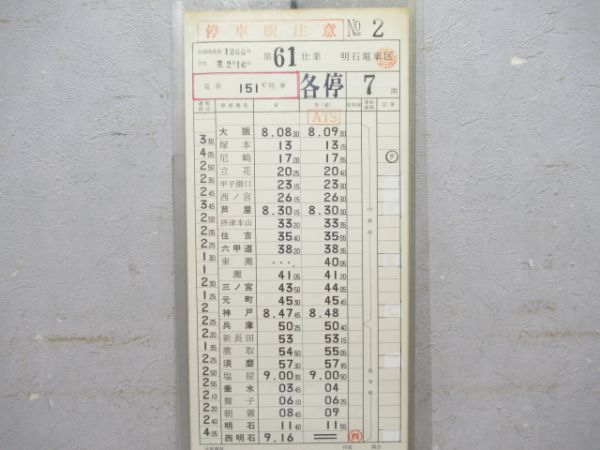 停車駅注意 No 2
1266
2 16 第61仕業 明石電車区
電第 151C 列車 各停 7
停車場名 着 発 記事
ATS
大阪 8.08 30 8.09 30
3 30 塚本 13 13 15
4 05 尼崎 17 20 17 35
2 50 立花 20 25 20 40
2 35 甲子園口 23 15 23 30
2 45 西ノ宮 26 15 26 30
3 45 芦屋 8.30 15 8.30 30
2 50 摂津本山 33 20 33 35
2 05 住吉 35 40 35 55
2 25 六甲道 38 20 38 35
1 30 東灘 ... 40 05
1 灘 41 05 41 20
2 30 三ノ宮 43 50 44 05
1 25 元町 45 30 45 45
2 神戸 8.47 45 8.48
2 25 兵庫 50 25 50 40
2 20 新長田 53 53 15
1 35 鷹取 54 50 55 05
2 25 須磨 57 30 57 45
2 50 塩屋 9.00 35 9.00 50
2 55 垂水 03 45 04
2 10 舞子 06 10 06 25
2 20 朝霧 08 45 09
2 40 明石 11 40 11 55
4 05 西明石 9.16